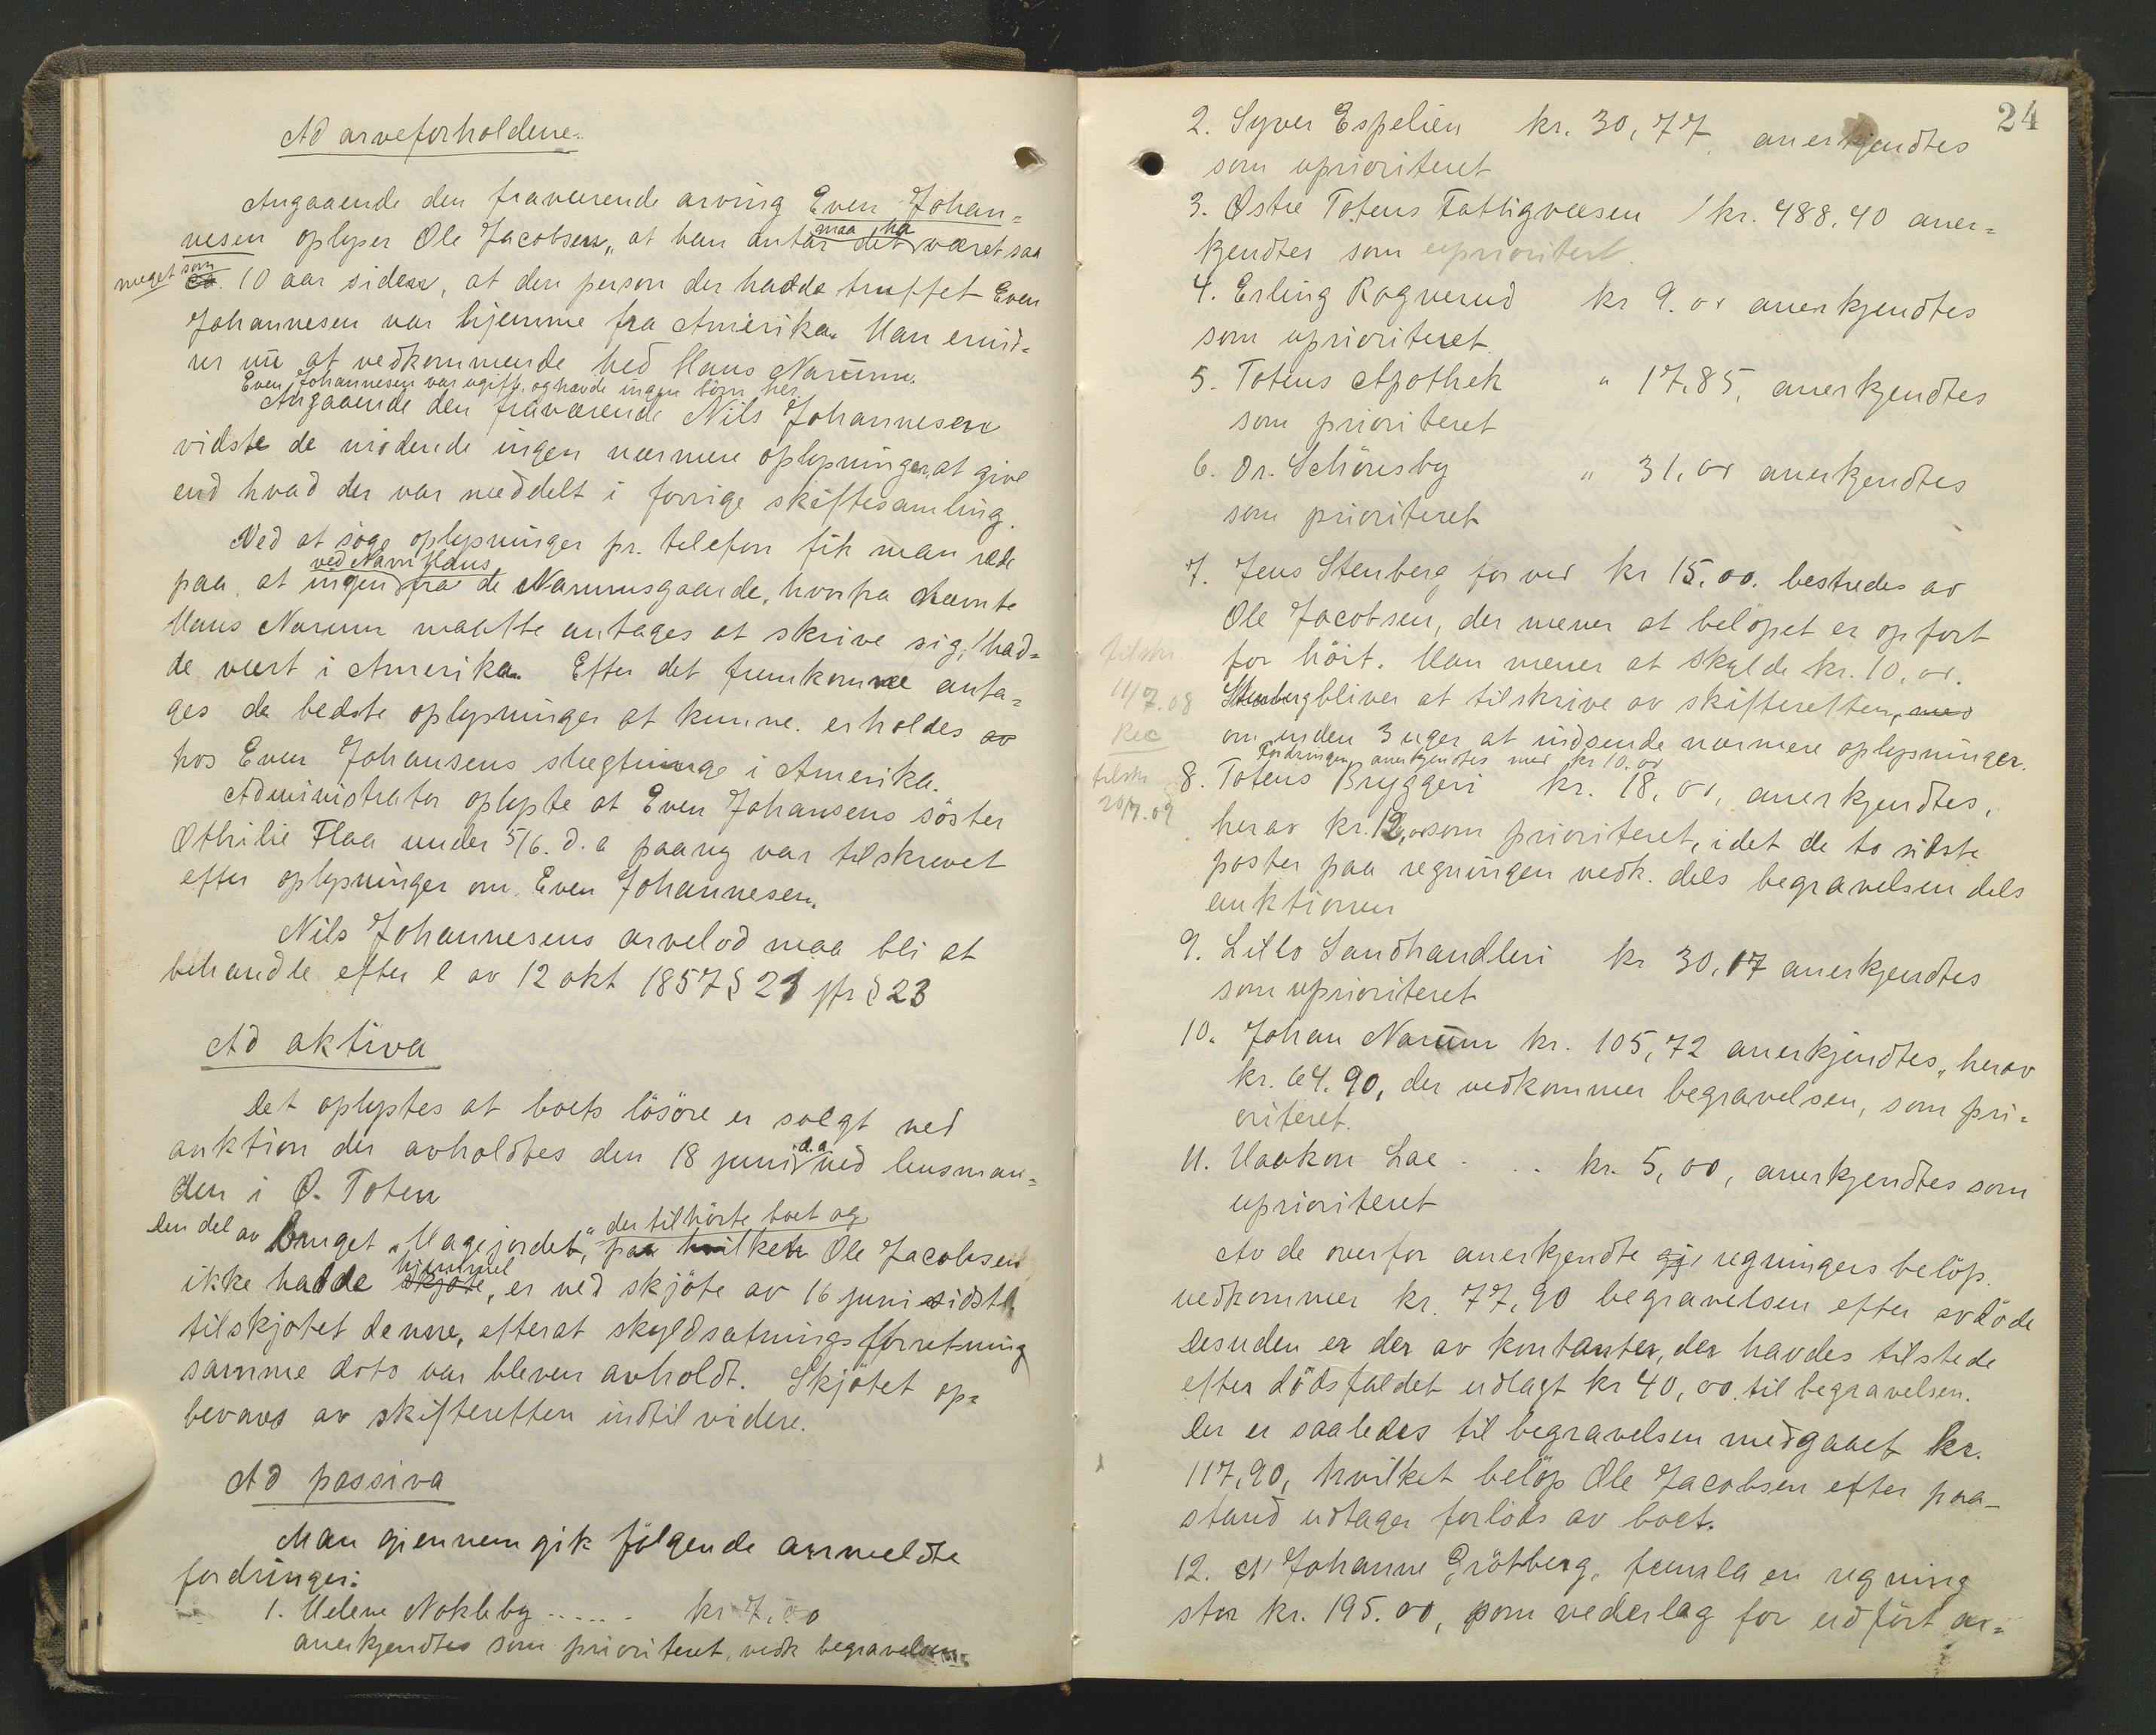 Ad arveforholdene.
Angaaende den fraværende arving Even Johan-
nesen oplyser Ole Jacobsen, at han antar det maa ha været saa
meget som ca. 10 aar siden, at den person der hadde truffet Even
Johannesen var hjemme fra Amerika. Man erind-
rer nu at vedkommende hed Hans Narum.
Even Johannesen var ugift og havde ingen børn her.
Angaaende den fraværende Nils Johannesen
vidste de mødende ingen nærmere oplysninger at give
end hvad der var meddelt i forrige skiftesamling.
Ved at søge oplysninger pr. telefon fik man rede
paa, at ingen ved Navn Hans fra de Narumsgaarde, hvorfra nævnte
Hans Narum maatte antages at skrive sig, had-
de vært i Amerika. Efter det fremkomne anta-
ges de bedste oplysninger at kunne erholdes av
hos Even Johansens slegtninge i Amerika.
Administrator oplyste at Even Johansens søster
Othilie Flaa under 5/6. d.a paany var tilskrevet
efter oplysninger om Even Johannesen.
Nils Johannesens arvelod maa bli at
behandle efter l av 12 okt 1857 § 21 jfr § 23
Ad aktiva
Det oplystes at boets løsøre er solgt ved
auktion der avholdtes den 18 juni d.a ved lensman-
den i Ø. Toten
Den del av bruget "Hagejordet", der tilhørte boet og paa hvilken Ole Jacobsen
ikke hadde skjøte hjemmel, er ved skjøte av 16 juni sidstl.
tilskjøtet denne, efterat skyldsætningsforretning
samme dato var bleven avholdt. Skjøtet op-
bevares av skifteretten indtil videre.
Ad passiva
Man gjennemgik følgende anmeldte
fordringer:
1. Helene Nøkleby ..... kr 7,00
anerkjendtes som prioriteret, vedk begravelsen.
24
2. Syver Espelien kr. 30,77 anerkjendtes
som uprioriteret
3. Østre Totens Fattigvæsen kr. 488,40 aner-
kjendtes som uprioritert.
4. Erling Rognerud kr 9.00 anerkjendtes
som uprioriteret
5. Totens Apothek " 17,85, anerkjendtes
som prioriteret
6. Dr. Schönsby " 31,00 anerkjendtes
som prioriteret
7. Jens Stenberg for ved kr 15,00. bestredes av
Ole Jacobsen, der mener at beløpet er opført
for høit. Han mener at skylde kr. 10,00.
tilskr
11/7.08
Rec
Stenberg bliver at tilskrive av skifteretten, med
om inden 3 uger at indsende nærmere oplysninger.
Fordringen anerkjendtes med kr 10.00
tilskr
20/7.09
8. Totens Bryggeri kr. 18,00, anerkjendtes,
herav kr. 12,00 som prioriteret, idet de to sidste
poster paa regningen vedk. dels begravelsen dels
auktionen
9. Lillo Landhandleri kr 30,17 anerkjendtes
som uprioriteret
10. Johan Narum kr. 105,72 anerkjendtes, herav
kr. 64.90, der vedkommer begravelsen, som pri-
oriteret.
11. Haakon Lae . .. kr. 5,00, anerkjendtes som
uprioriteret
Av de overfor anerkjendte gj regningers beløp.
vedkommer kr. 77,90 begravelsen efter avdøde
Desuden er der av kontanter, der havdes tilstede
efter dødsfaldet udlagt kr 40,00 til begravelsen.
Der er saaledes til begravelsen medgaaet kr.
117,90, hvilket beløp Ole Jacobsen efter paa-
stand udtager forlods av boet.
12. Johanne Grøtberg, fremla en regning
stor kr. 195.00, som vederlag for udført ar-